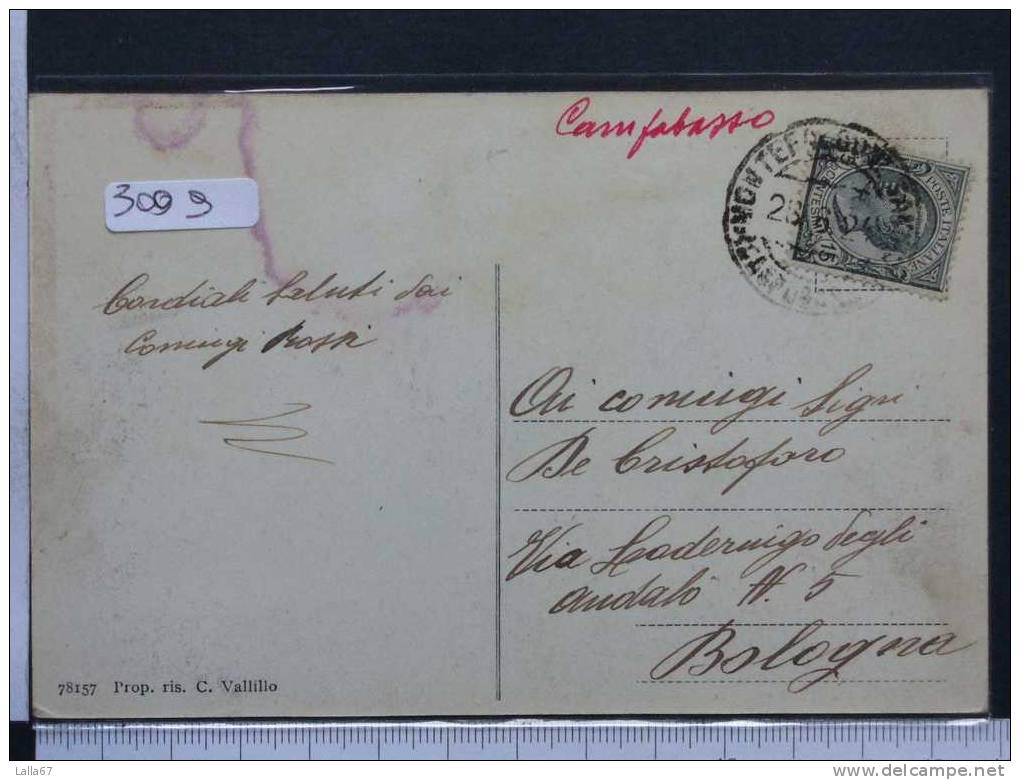 Campobasso
3009
POSTE ITALIANE
CENTESIMI 15
Cordiali saluti dai
Coniugi Rossi
Ai coniugi Sigri
De Cristoforo
Via Loderingo degli
Andalò N. 5
Bologna
78157 Prop. ris. C. Vallillo
Lalla67
delcampe.net